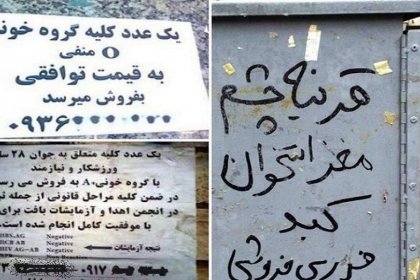 یک عدد کلیه گروه خونی
O منفی
به قیمت توافقی
بفروش میرسد
۰۹۳۶
یک عدد کلیه متعلق به جوان ۲۸ سا
ورزشکار و نیازمند
با گروه خونی A+ به فروش می رسد
در ضمن کلیه مراحل قانونی از جمله ثبت
در انجمن اهدا و آزمایشات بافت برای
با موفقیت کامل انجام شده است.
نتیجه آزمایشات
HBS.AG Negative
HCB AB Negative
HIV AG-AB Negative
۰۹۱۷
قرنیه چشم
مغز استخوان
کبد
فوری فروشی